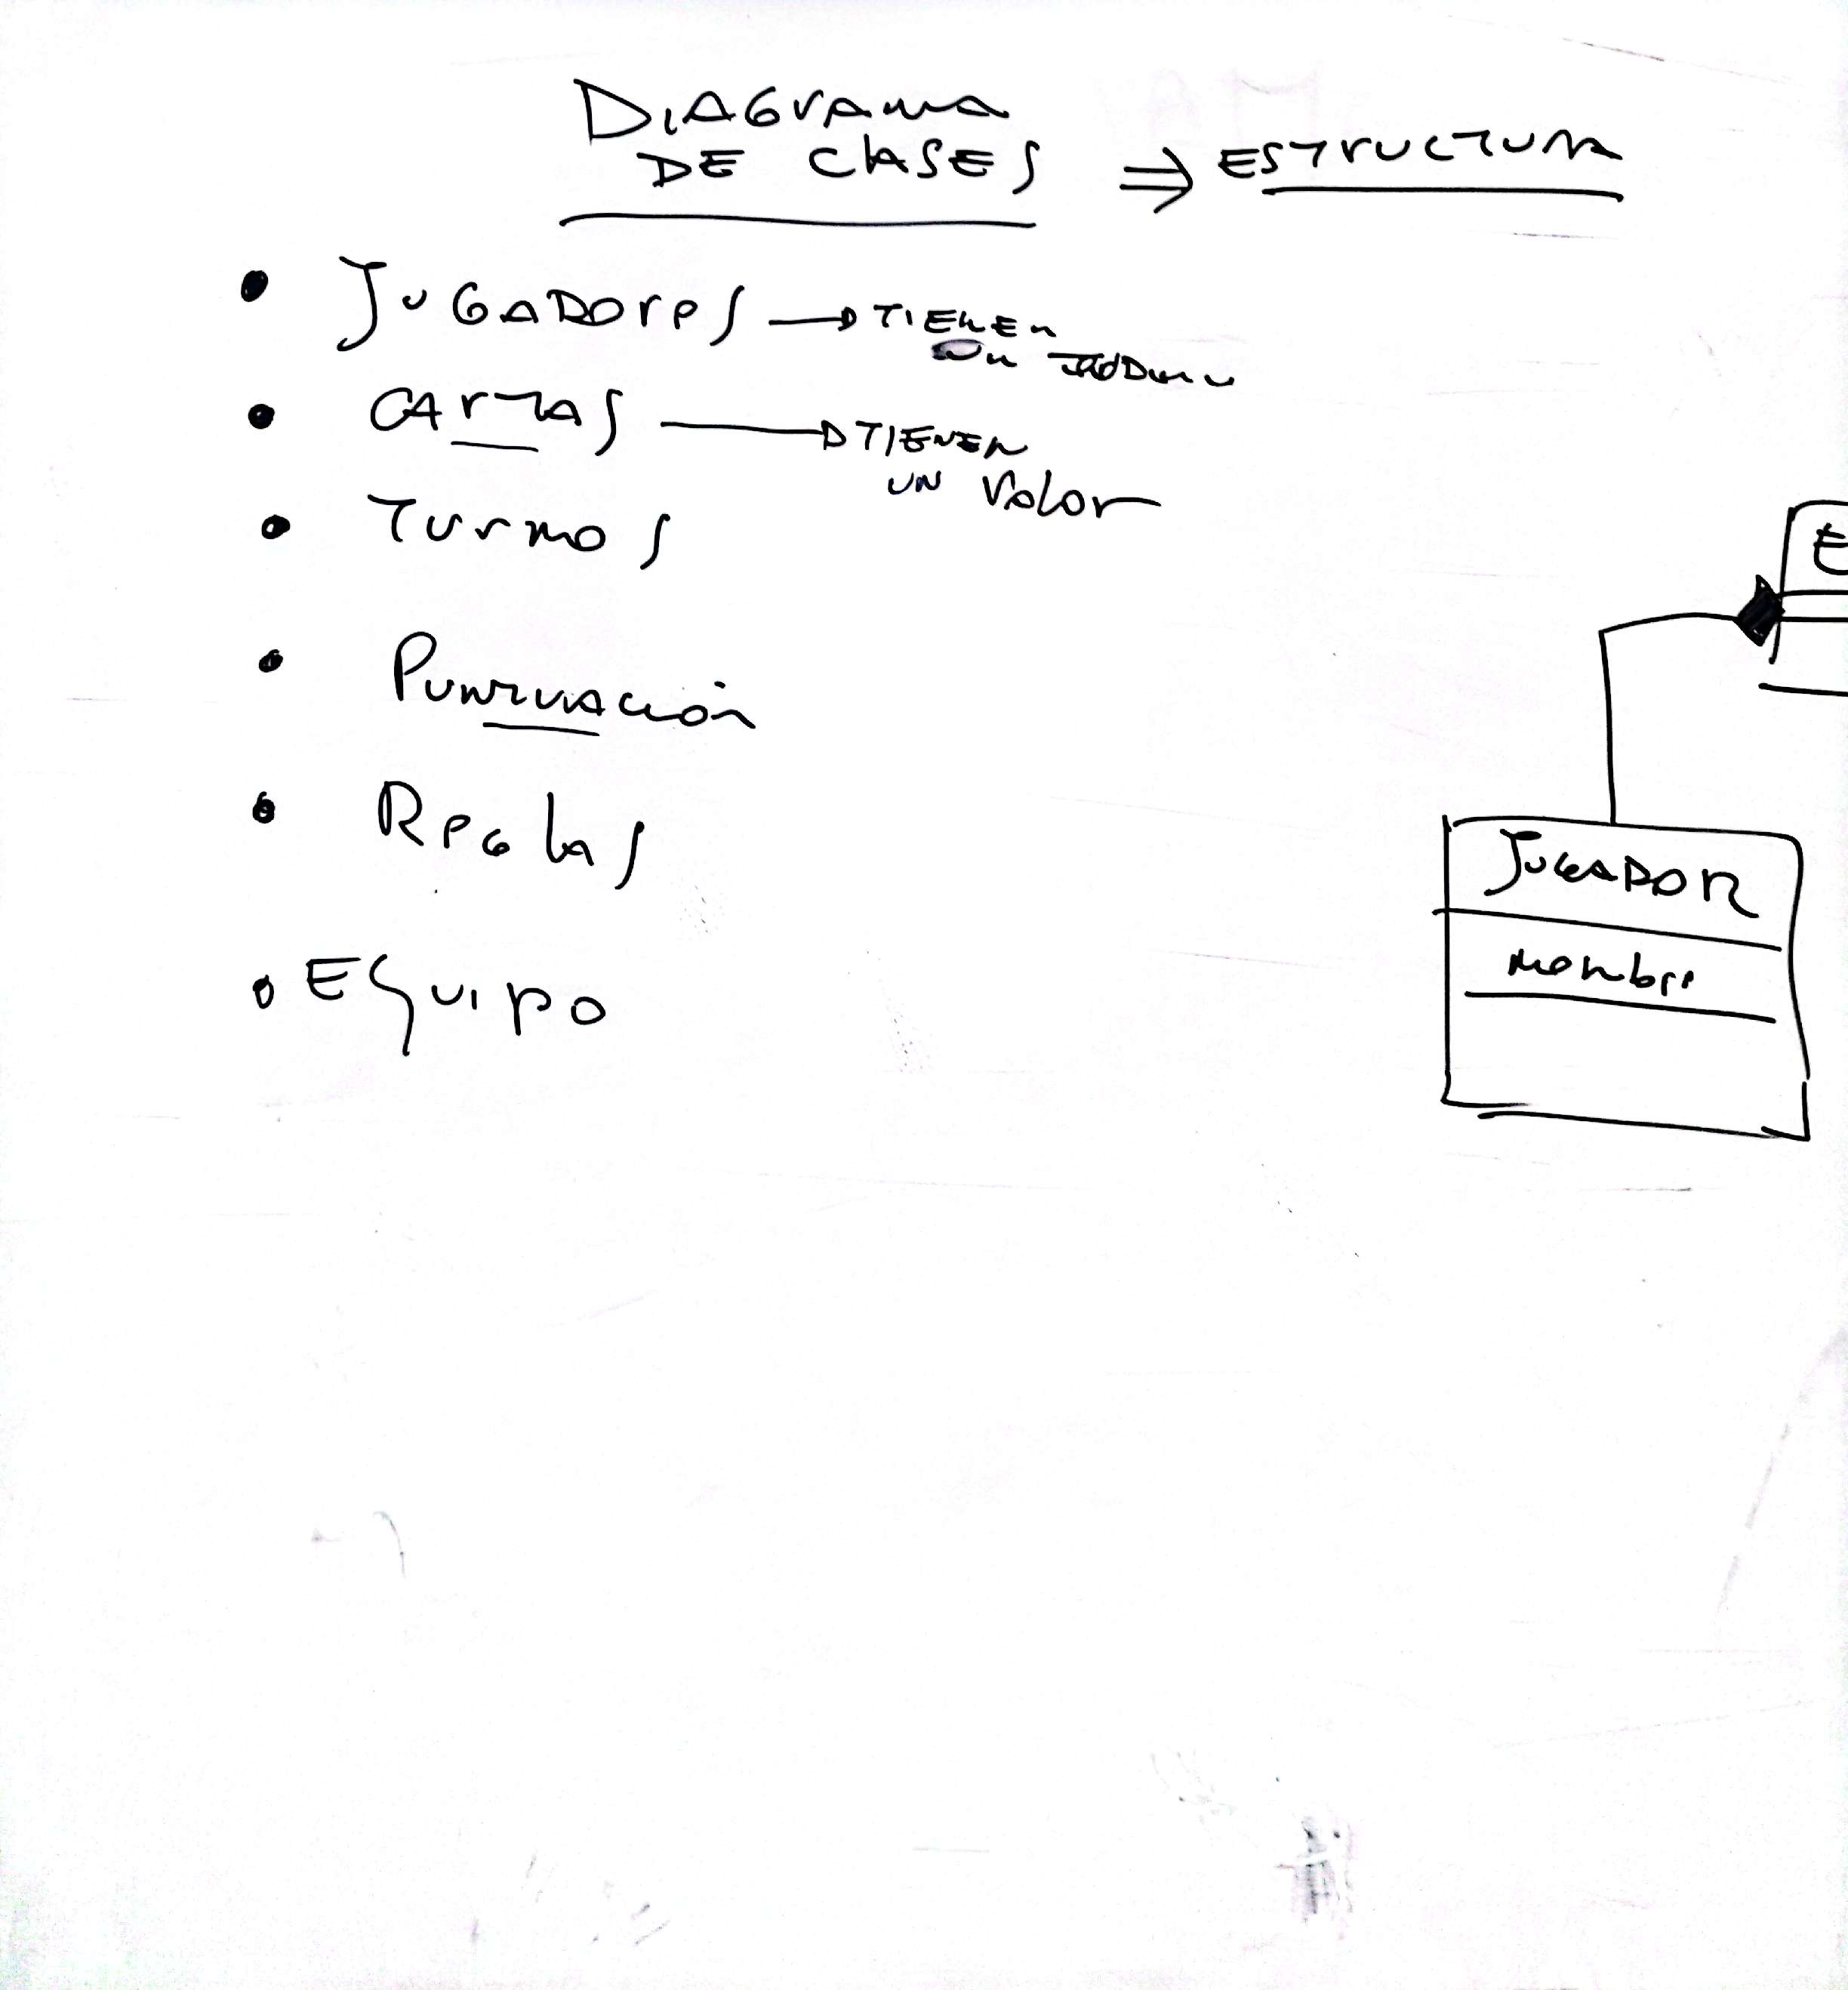 DIAGrama
DE CLASES ⇒ ESTrUCTURA
• JUGADOrES → TIENEN
un
• CArTAS → TIENEN
UN Valor
• Turnos
• Puntuación
• Reglas
• EQuipo
E
JUGADOR
nombre